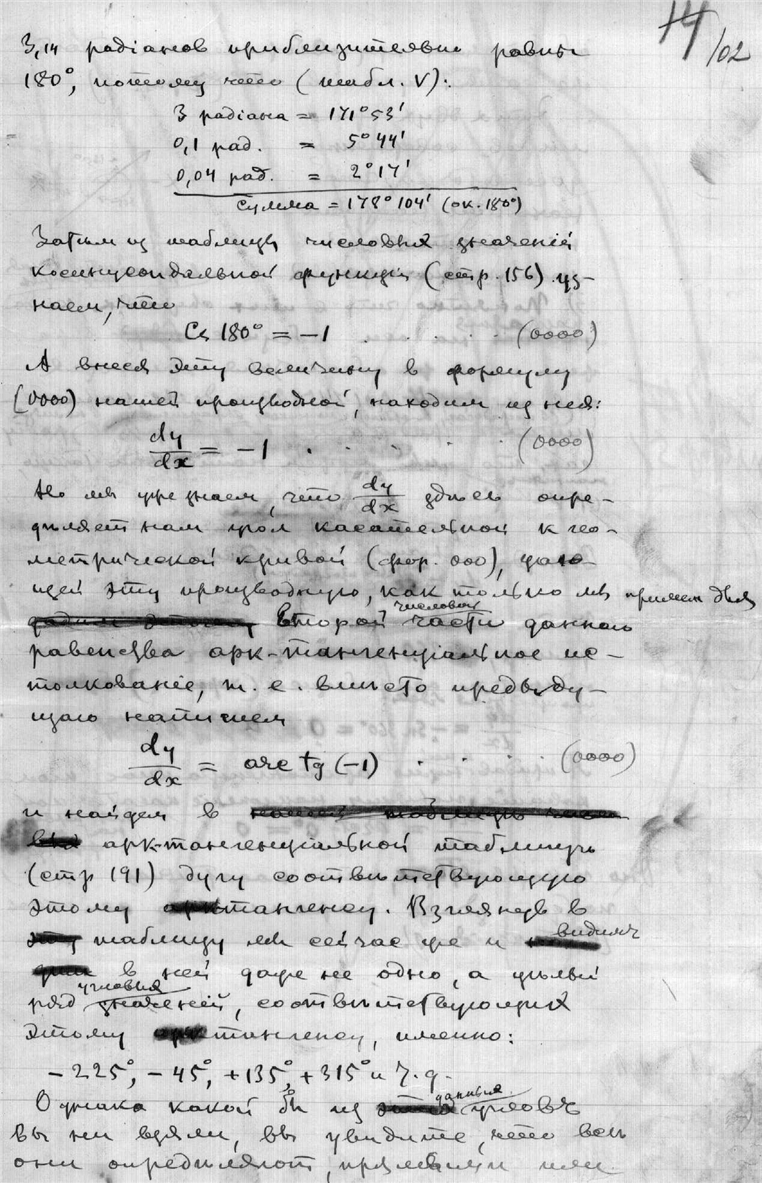 14/02
3,14 радіанов приблизительно равны
180°, потому что (табл. V):
3 радіана = 171° 53'
0,1 рад. = 5° 44'
0,04 рад. = 2° 17'
Сумма = 178° 104' (ок. 180°)
Затем из таблицы числовых значеній
косинусоидальной функціи (стр. 156) уз-
наем, что
Cs 180° = −1 . . . . (0000)
А внеся эту величину в формулу
(0000) нашей производной, находим из нея:
dy/dx = −1 . . . . (0000)
Но мы уже знаем, что dy/dx здѣсь опре-
дѣляет нам угол касательной к гео-
метрической кривой (фор. 000), даю-
щей эту производную, как только мы примем для
второй числовой части даннаго
равенства арк-тангенціальное ис-
толкованіе, т. е. вмѣсто предыду-
щаго напишем
dy/dx = arc tg (−1) . . . (0000)
и найдем в
арк-тангенціальной таблицѣ
(стр 191) дугу соотвѣтствующую
этому тангенсу. Взглянув в
таблицу мы сейчас же и видим
в ней даже не одно, а цѣлый
ряд угловых значеній, соотвѣтствующих
этому тангенсу, именно:
−225°, −45°, +135°, +315° и т. д.
Однако какой бы из данных углов
вы ни взяли, вы увидите, что всѣ
они опредѣляют, прямыми или